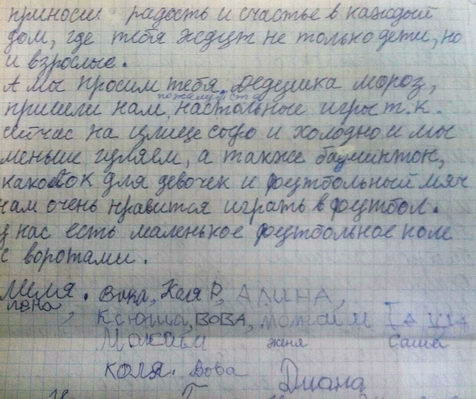 приносиш радость и счастье в каждый
дом, где тебя ждут не только дети, но
и взрослые.
А мы просим тебя, дедушка мороз,
пожалуйста
пришли нам, настольные игры т.к.
сейчас на улице и холодно и мы
меньше гуляем, а также бадминтон,
для девочек и футбольный мяч
нам очень нравится играть в футбол.
У нас есть маленькое футбольное поле
с воротами.
Вика, Коля Р, АЛИНА,
лена, Ксюша, ВОВА,
Максим женя Саша
коля. Вова Диана